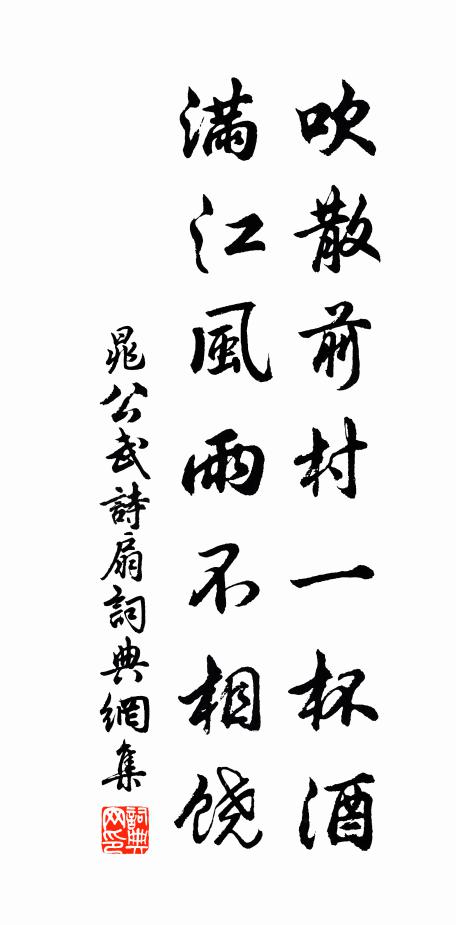 吹散前村一杯酒
滿江風雨不相饶
晁公武詩扇詞典網集
詞典網印